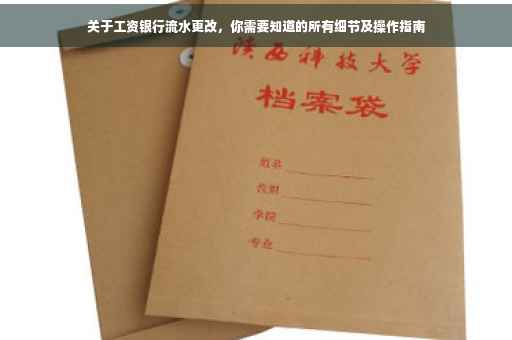 关于工资银行流水更改，你需要知道的所有细节及操作指南
陕西科技大学
档案袋
姓名
性别
学院
专业